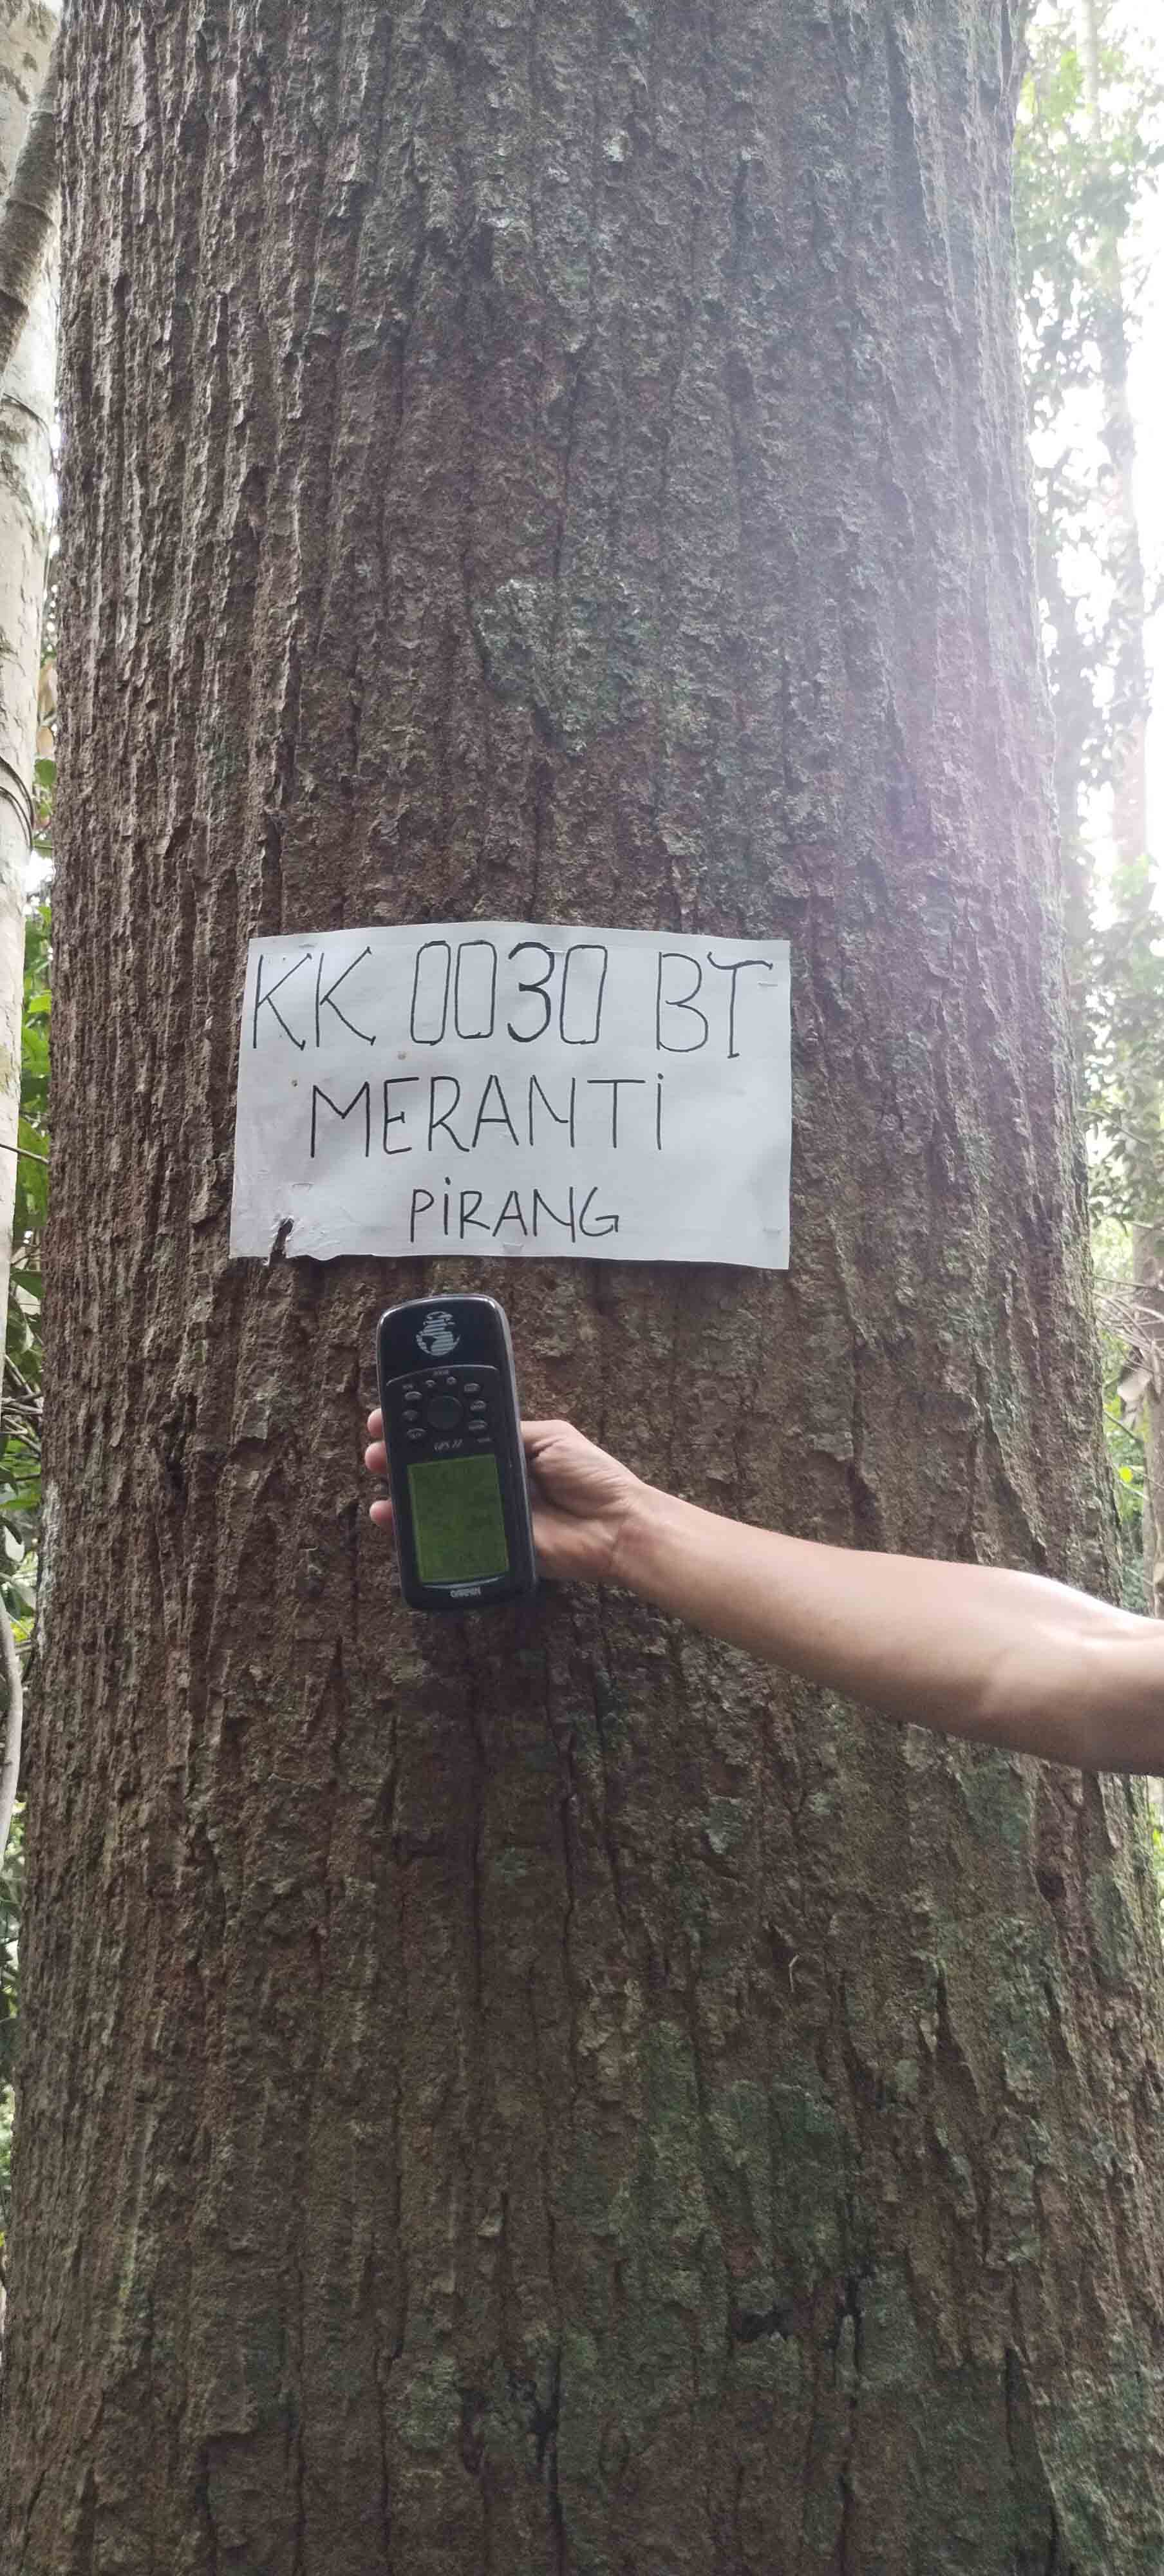 KK 0030 BT
MERANTi
PiRANG
GARMIN